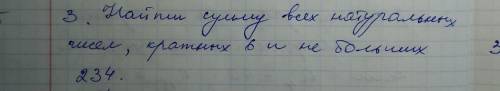 3. Найти сумму всех натуральных
чисел, кратных 6 и не больших 3
234.